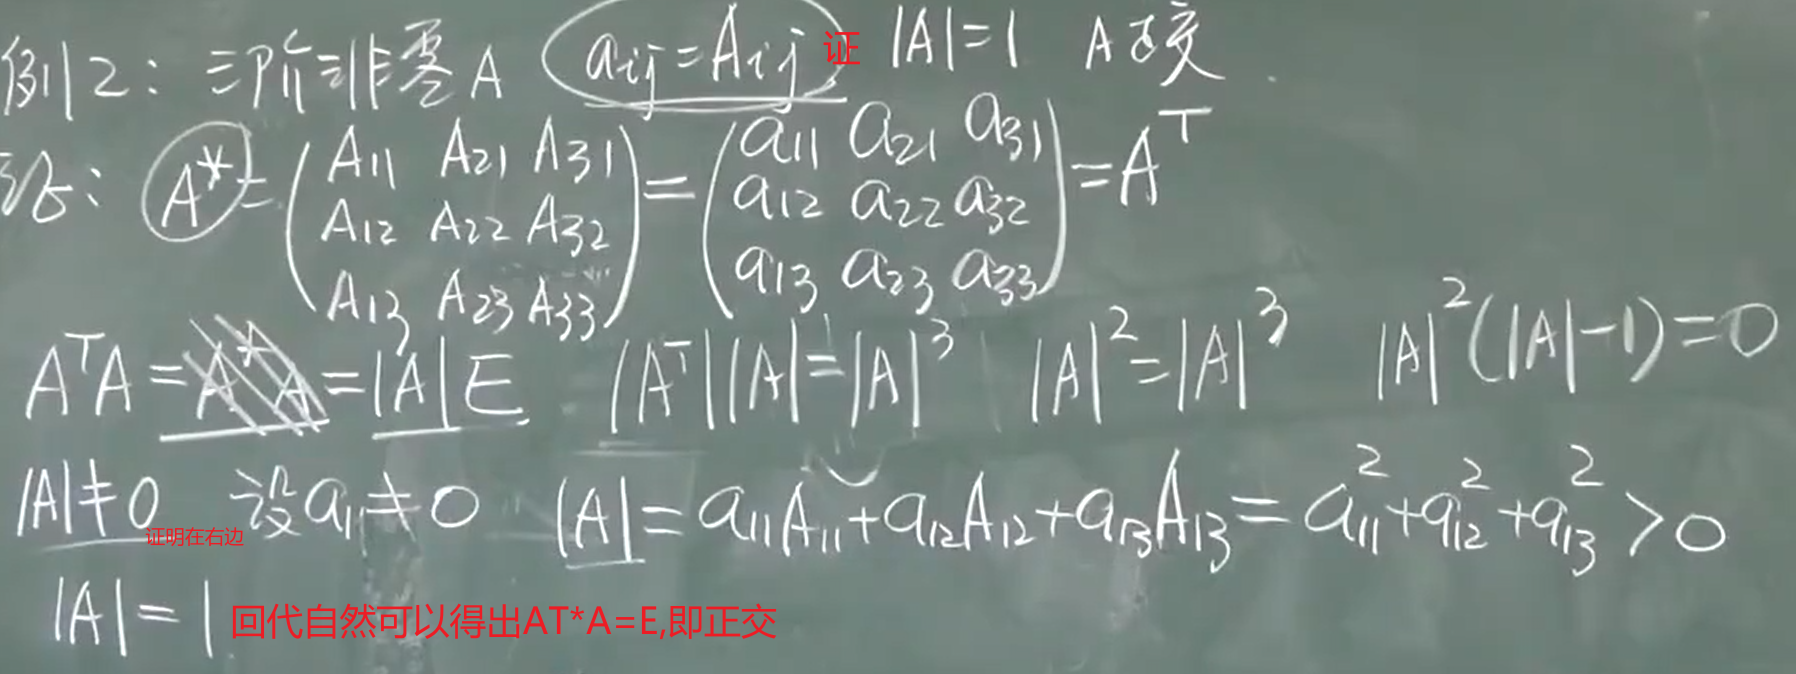 例2：三阶非零A aij=Aij 证 |A|=1 A正交.
证：A*=(A11 A21 A31 = (a11 a21 a31 =A^T
A12 A22 A32 a12 a22 a32
A13 A23 A33) a13 a23 a33)
A^TA=A*A=|A|E |A^T||A|=|A|^3 |A|^2=|A|^3 |A|^2(|A|-1)=0
|A|≠0 设a11≠0 |A|=a11A11+a12A12+a13A13=a11^2+a12^2+a13^2>0
证明在右边
|A|=1 回代自然可以得出AT*A=E,即正交